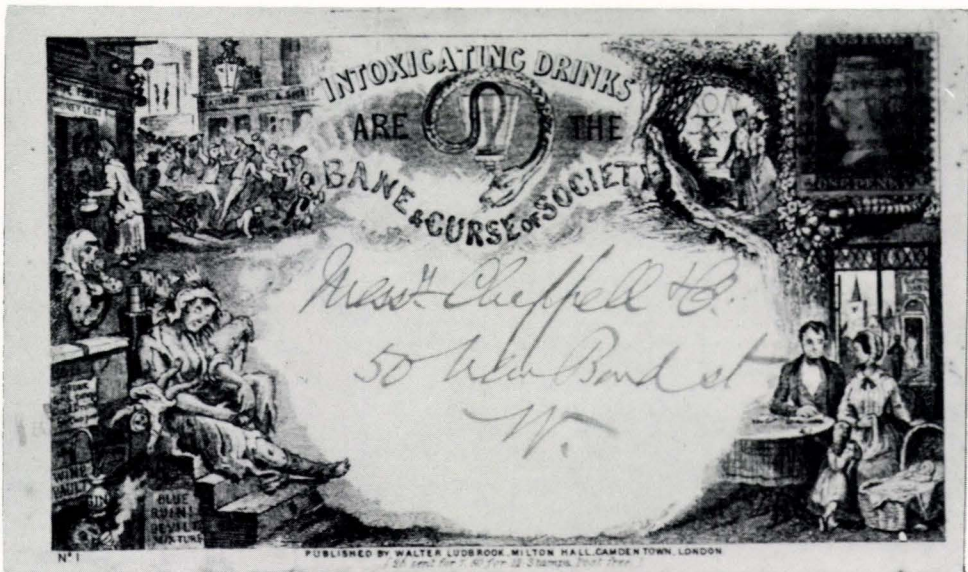 INTOXICATING DRINKS
ARE THE
BANE & CURSE OF SOCIETY
Messrs Chappell & Co.
50 New Bond st
W.
WINE
VAULTS
GIN
BLUE
RUIN!
DEVIL'S
MIXTURE
ONE PENNY
No 1
PUBLISHED BY WALTER LUDBROOK, MILTON HALL, CAMDEN TOWN, LONDON.
Post free.